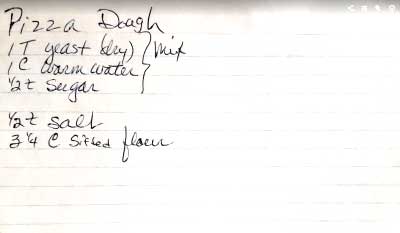 Pizza Dough
1 T yeast (dry)
1 C warm water } Mix
1/2 t Sugar
1/2 t Salt
3 1/4 C Sifted flour